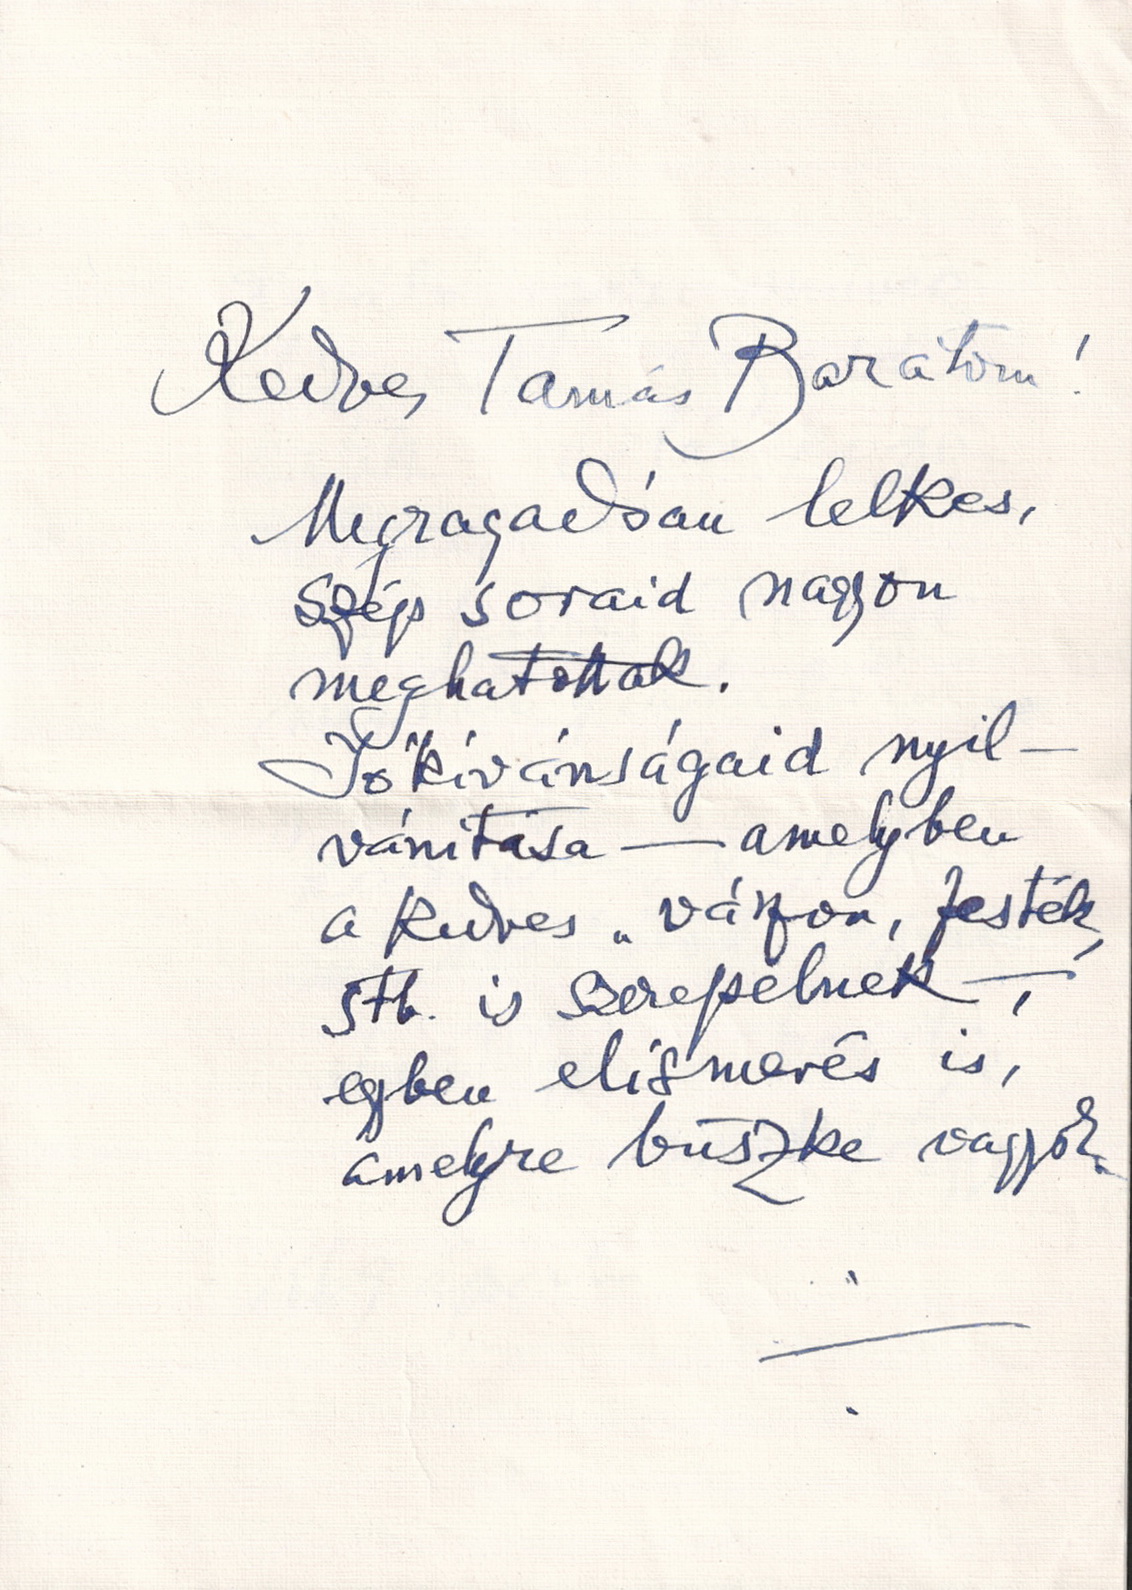 Kedves Tamás Barátom!
Megragadóan lelkes,
szép soraid nagyon
meghatottak.
Jókívánságaid nyil-
vánitása — amelyben
a kedves „vászon, festék,
stb. is szerepelnek —,
egyben elismerés is,
amelyre büszke vagyok.